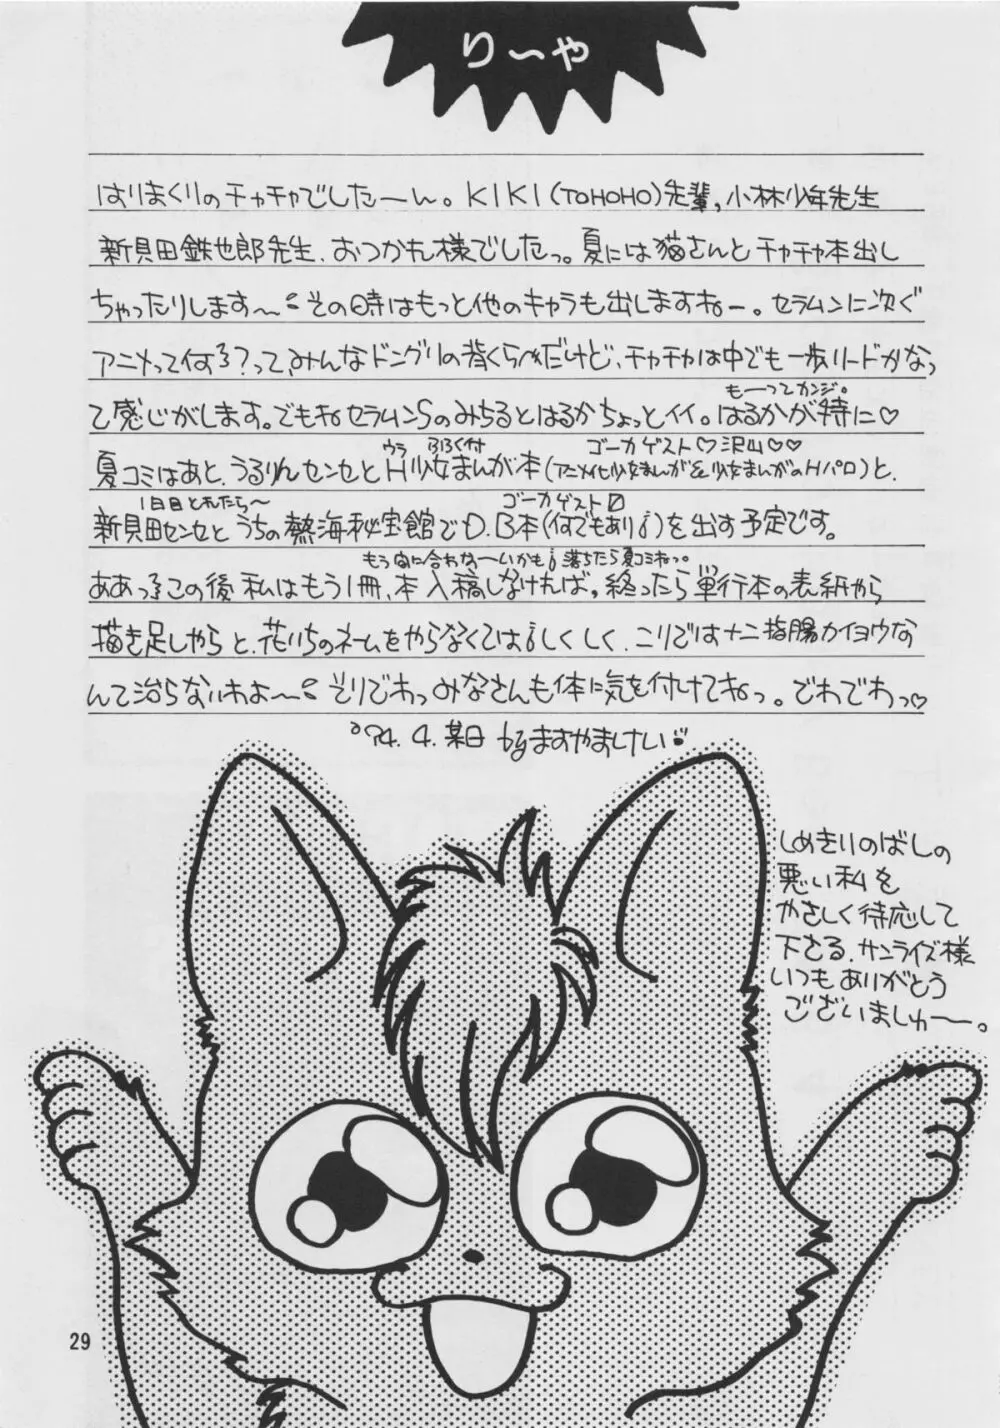 りーや
はりまくりのチャチャでしたーん。KIKI(TOHOHO)先輩,小林少年先生
新貝田鉄也郎先生、おつかれ様でしたっ。夏には猫さんとチャチャ本出し
ちゃったりします〜 その時はもっと他のキャラも出しますねー。セラムンに次ぐ
アニメって何ろ?って、みんなドングリの背くらべだけど、チャチャは中でも一歩リードかなっ
て感じがします。でもねセラムンSのみちるとはるかちょっとイイ。はるかが特に♡
もーってカンジ。
夏コミはあと、うるりんセンセとH少女まんが本(アニメイセ少女まんが&少女まんがのHパロ)と、
ウラ ふろく付 ゴーカゲスト♡沢山♡♡
新貝田センセとうちの熱海秘宝館でD.B本(何でもあり!)を出す予定です。
1日目とれたら〜 ゴーカゲスト
ああっこの後私はもう1冊、本入稿しなければ。終ったら単行本の表紙から
もう間に合わな〜いかも!落ちたら夏コミねっ。
描き足しやらと、花いちのネームをやらなくては!しくしく、こりでは十二指腸カイヨウな
んて治らないわよ〜 そりでわっみなさんも体に気を付けてねっ。でわでわっ♡
'94.4.某日 byますやましけい
しめきりのばしの
悪い私を
やさしく待応して
下さる、サンライズ様
いつもありがとう
ございましゅ〜。
29